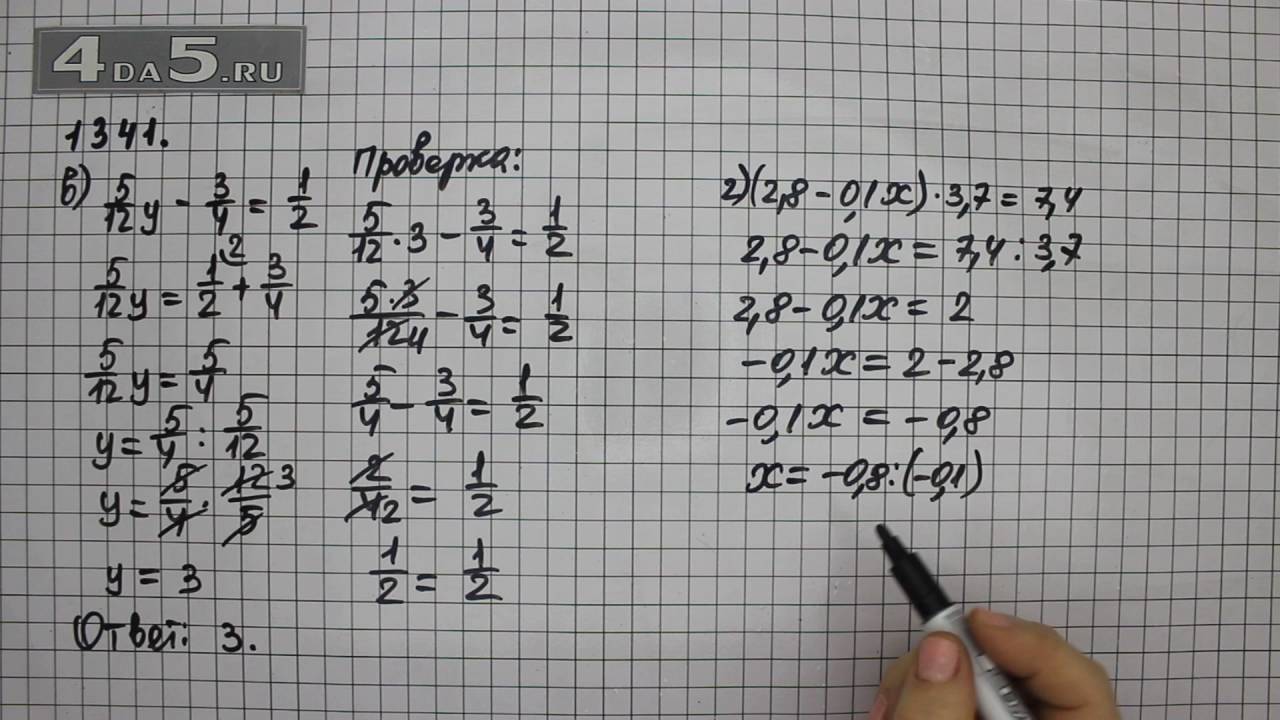 4DA5.RU
1341.
в) 5/12 y - 3/4 = 1/2
5/12 y = 1/2 ² + 3/4
5/12 y = 5/4
y = 5/4 : 5/12
y = 5/4 · 12 3/5
y = 3
Ответ: 3.
Проверка:
5/12 · 3 - 3/4 = 1/2
5·3/12 4 - 3/4 = 1/2
5/4 - 3/4 = 1/2
2/4 2 = 1/2
1/2 = 1/2
г) (2,8 - 0,1x) · 3,7 = 7,4
2,8 - 0,1x = 7,4 : 3,7
2,8 - 0,1x = 2
-0,1x = 2 - 2,8
-0,1x = -0,8
x = -0,8 : (-0,1)